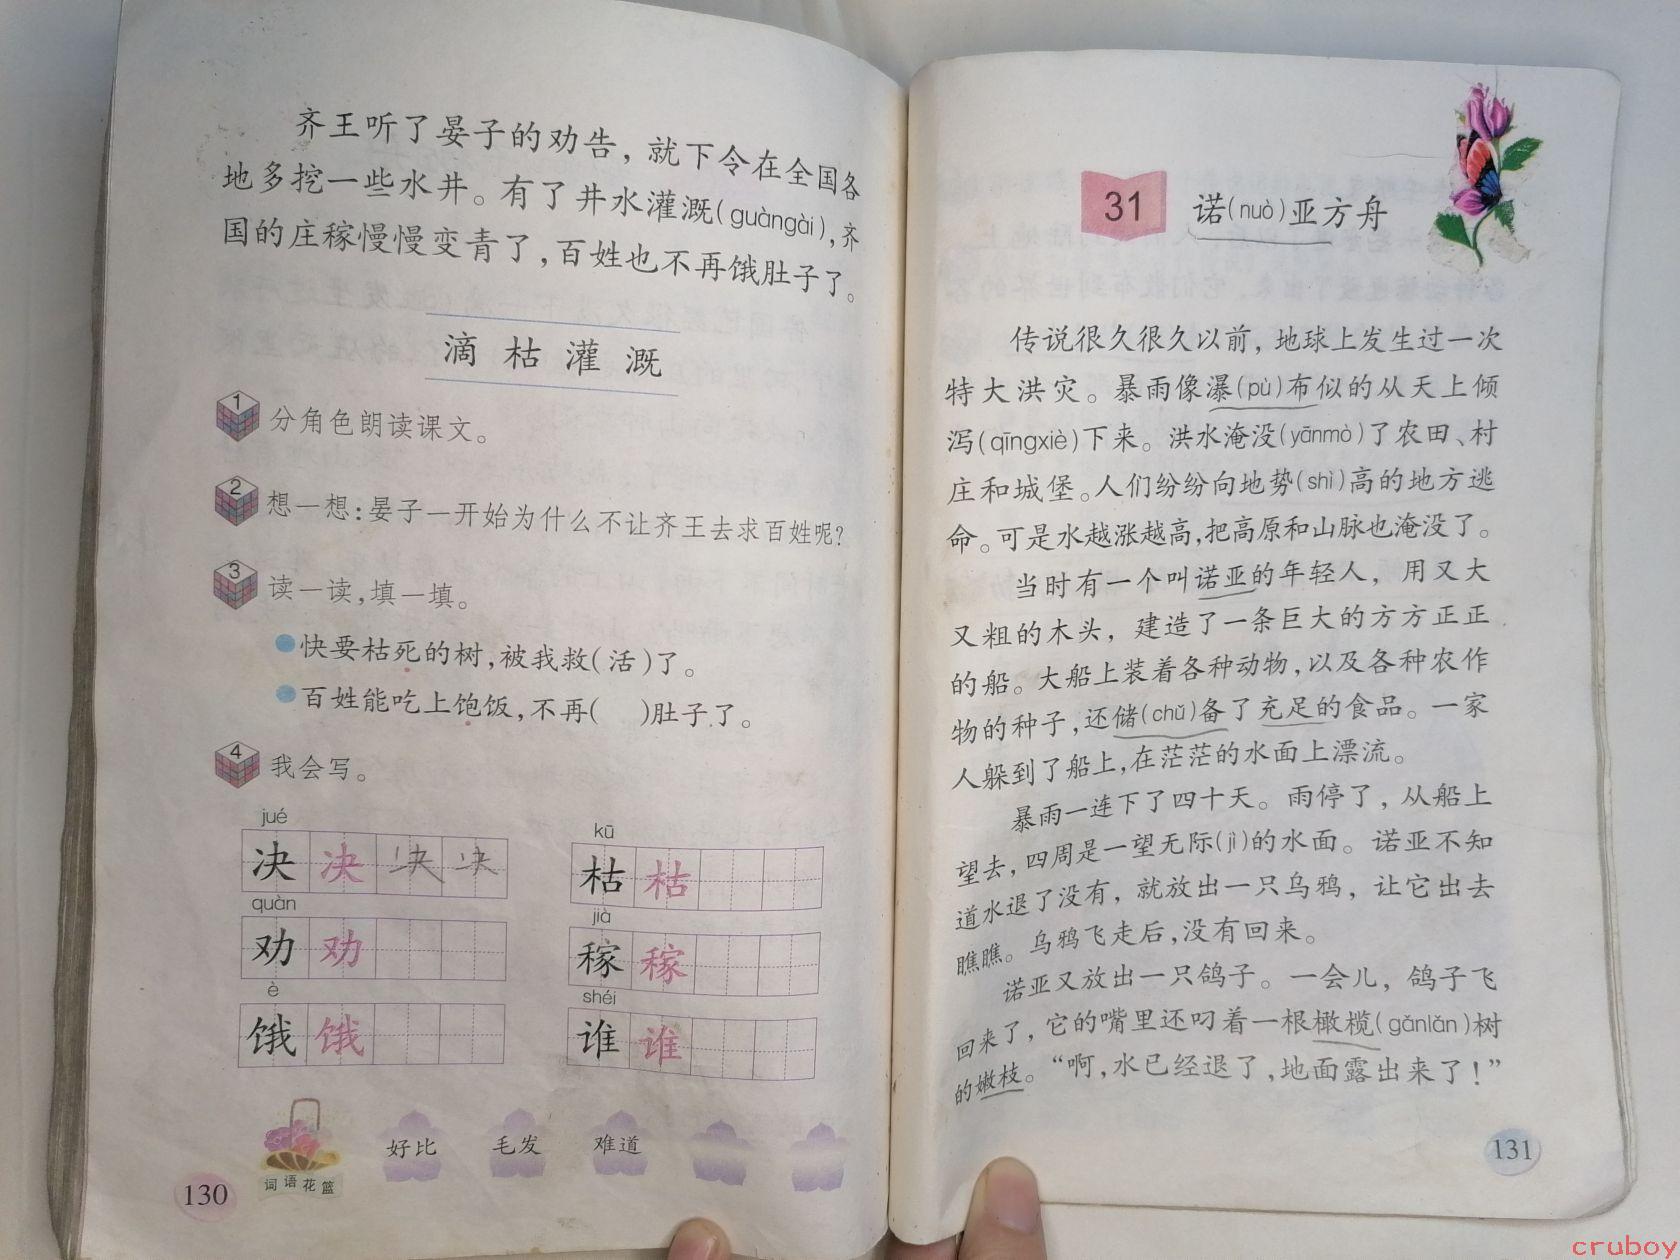 齐王听了晏子的劝告，就下令在全国各
地多挖一些水井。有了井水灌溉(guàngài)，齐
国的庄稼慢慢变青了，百姓也不再饿肚子了。
滴 枯 灌 溉
1 分角色朗读课文。
2 想一想：晏子一开始为什么不让齐王去求百姓呢？
3 读一读，填一填。
●快要枯死的树，被我救(活)了。
●百姓能吃上饱饭，不再( )肚子了。
4 我会写。
jué kū
决 决 决 决 枯 枯
quàn jià
劝 劝 稼 稼
è shéi
饿 饿 谁 谁
词语花篮 好比 毛发 难道
130
31 诺(nuò)亚方舟
传说很久很久以前，地球上发生过一次
特大洪灾。暴雨像瀑(pù)布似的从天上倾
泻(qīngxiè)下来。洪水淹没(yānmò)了农田、村
庄和城堡。人们纷纷向地势(shì)高的地方逃
命。可是水越涨越高，把高原和山脉也淹没了。
当时有一个叫诺亚的年轻人，用又大
又粗的木头，建造了一条巨大的方方正正
的船。大船上装着各种动物，以及各种农作
物的种子，还储(chǔ)备了充足的食品。一家
人躲到了船上，在茫茫的水面上漂流。
暴雨一连下了四十天。雨停了，从船上
望去，四周是一望无际(jì)的水面。诺亚不知
道水退了没有，就放出一只乌鸦，让它出去
瞧瞧。乌鸦飞走后，没有回来。
诺亚又放出一只鸽子。一会儿，鸽子飞
回来了，它的嘴里还叼着一根橄榄(gǎnlǎn)树
的嫩枝。“啊，水已经退了，地面露出来了！”
131
cruboy